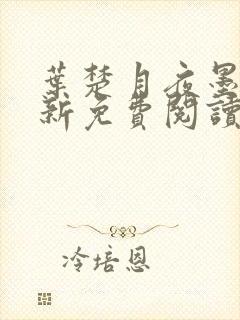 葉楚月夜墨
新免費閱讀
冷培恩